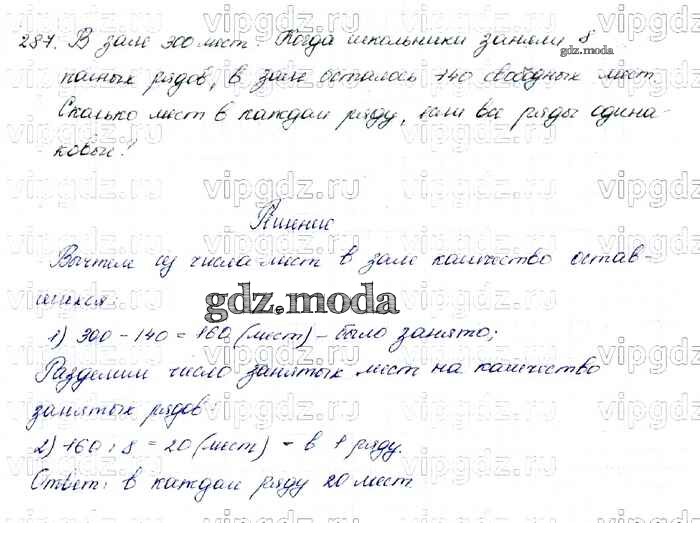 287. В зале 300 мест. Когда школьники заняли 8
полных рядов, в зале осталось 140 свободных мест.
Сколько мест в каждом ряду, если все ряды одина-
ковые?
Решение
Вычтем из числа мест в зале количество остав-
шихся:
1) 300 - 140 = 160 (мест) - было занято;
Разделим число занятых мест на количество
занятых рядов:
2) 160 : 8 = 20 (мест) - в 1 ряду.
Ответ: в каждом ряду 20 мест.
gdz.moda
gdz.moda
vipgdz.ru